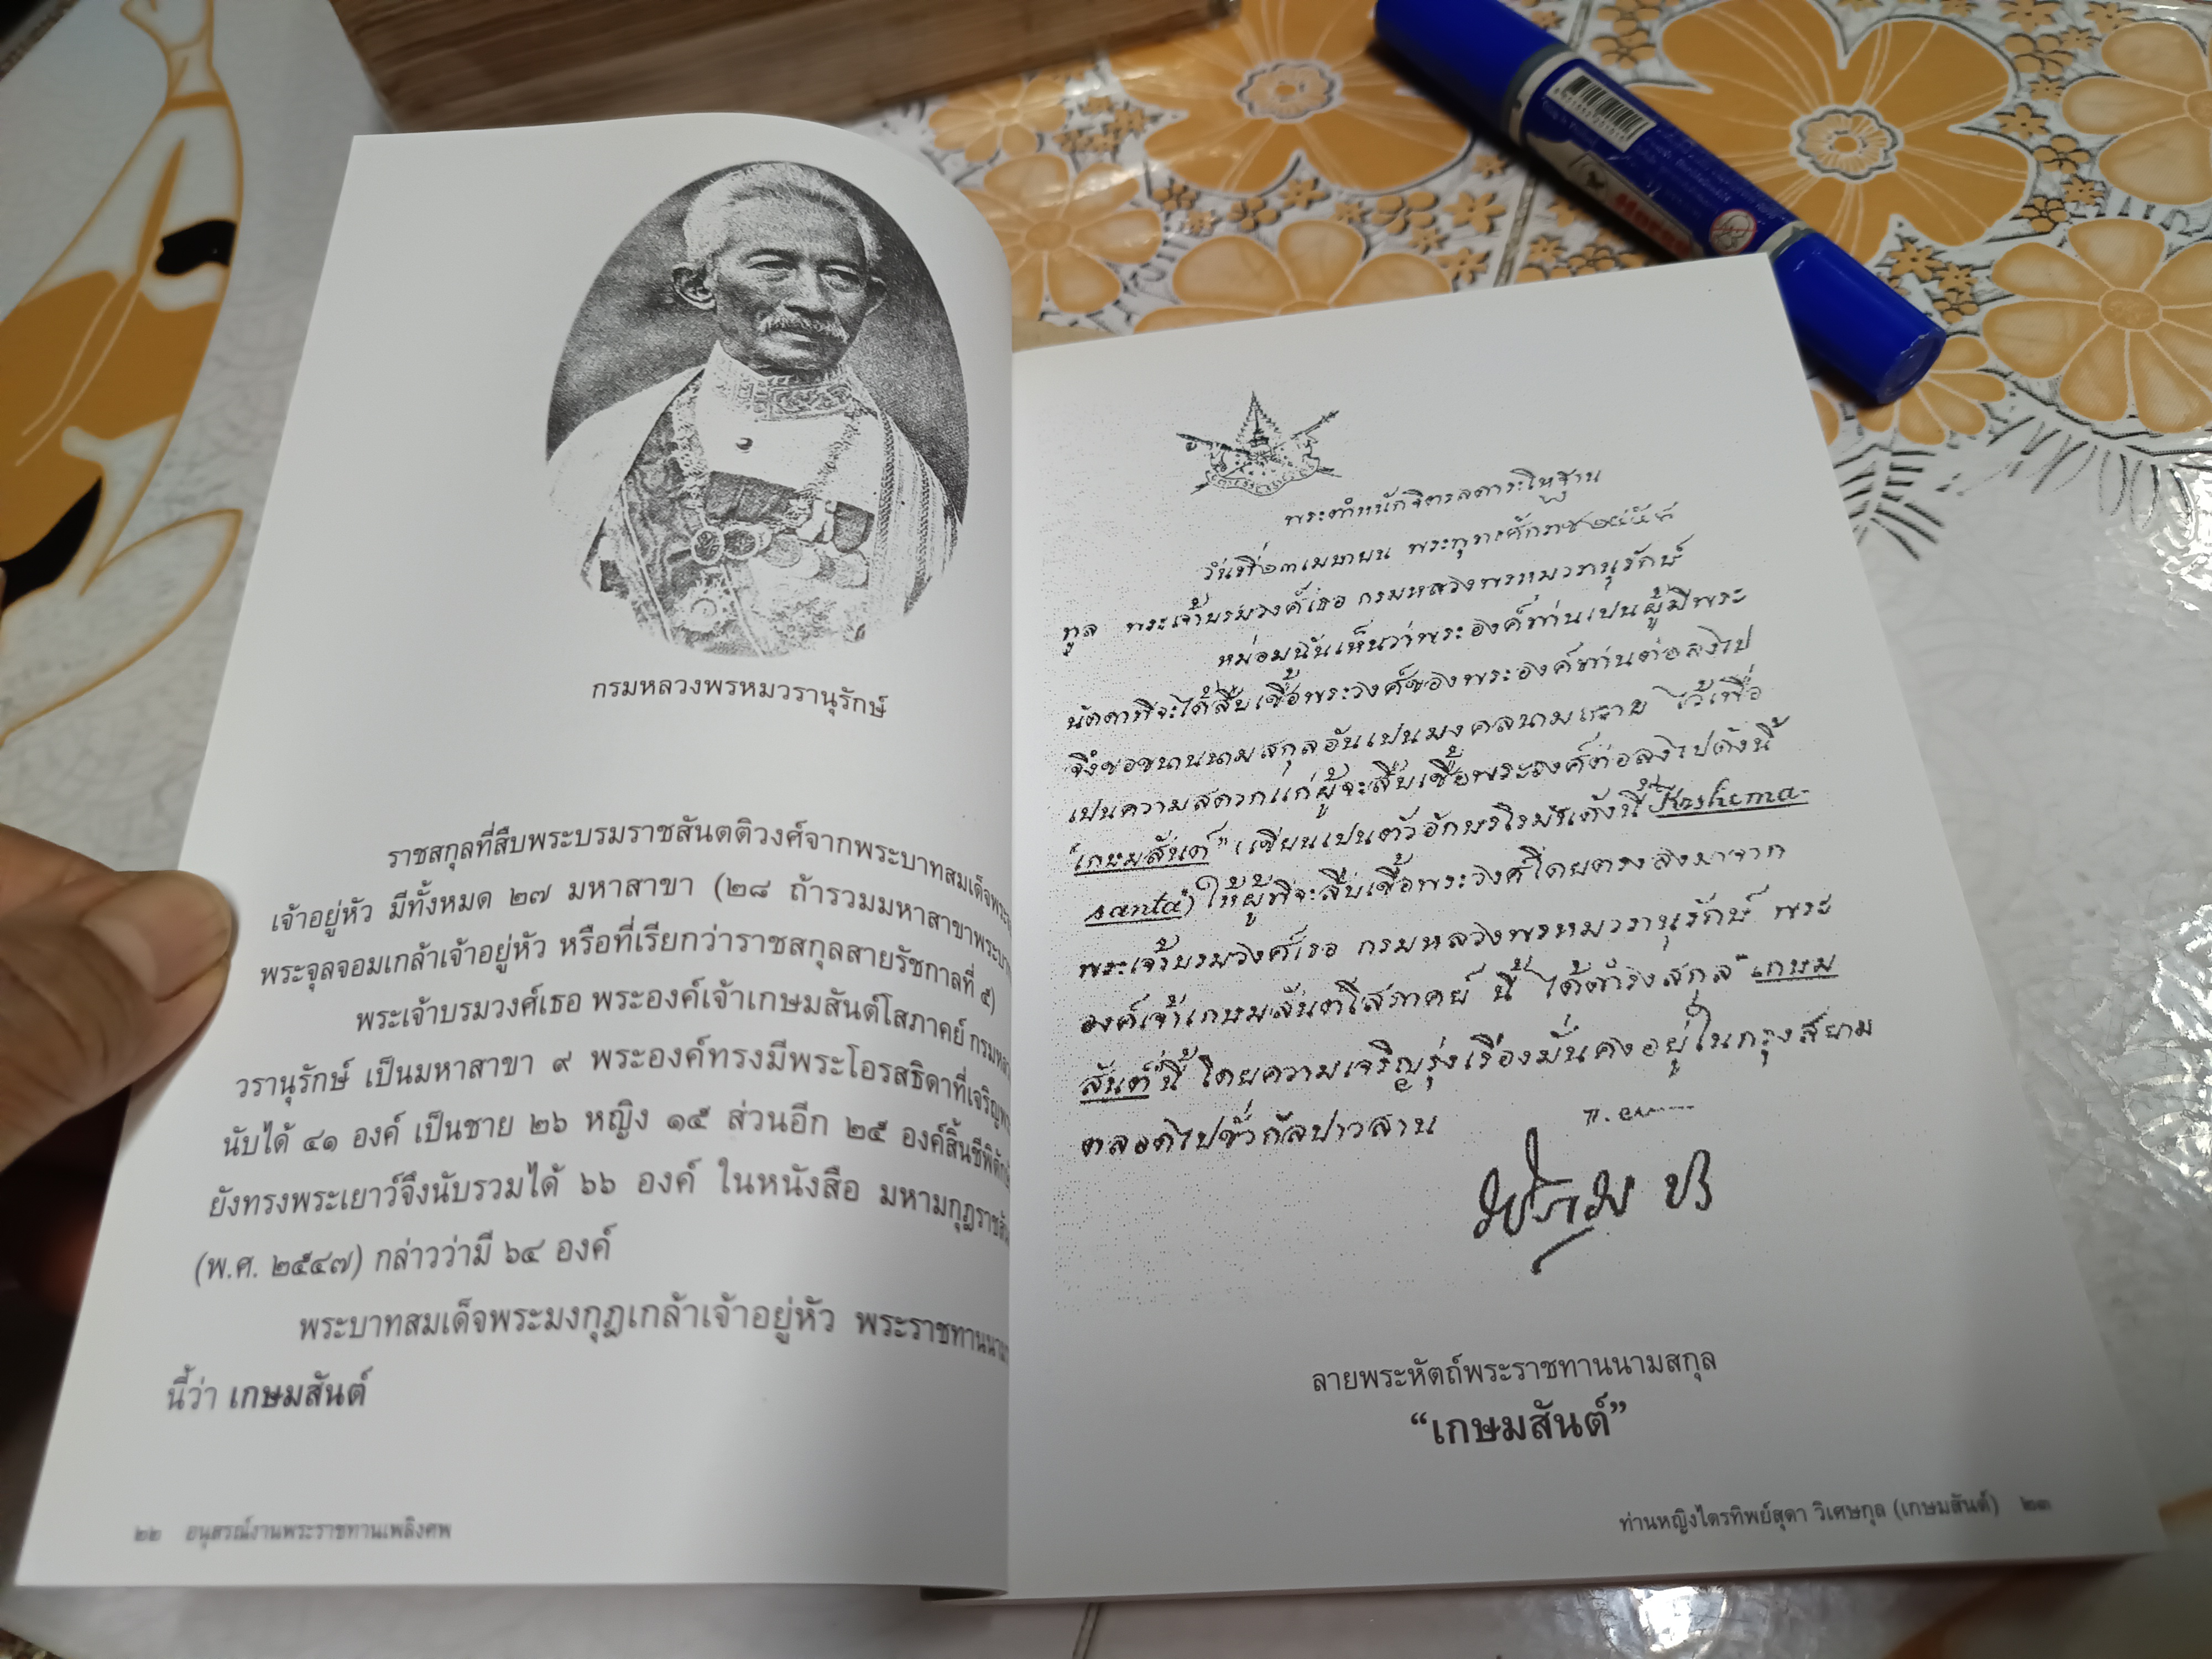 กรมหลวงพรหมวรานุรักษ์
ราชสกุลที่สืบพระบรมราชสันตติวงศ์จากพระบาทสมเด็จพระจอ
เจ้าอยู่หัว มีทั้งหมด ๒๗ มหาสาขา (๒๘ ถ้ารวมมหาสาขาพระบาท
พระจุลจอมเกล้าเจ้าอยู่หัว หรือที่เรียกว่าราชสกุลสายรัชกาลที่ ๕)
พระเจ้าบรมวงศ์เธอ พระองค์เจ้าเกษมสันต์โสภาคย์ กรมหลวง
วรานุรักษ์ เป็นมหาสาขา ๙ พระองค์ทรงมีพระโอรสธิดาที่เจริญพระ
นับได้ ๔๑ องค์ เป็นชาย ๒๖ หญิง ๑๕ ส่วนอีก ๒๕ องค์สิ้นชีพิตักษัย
ยังทรงพระเยาว์จึงนับรวมได้ ๖๖ องค์ ในหนังสือ มหามกุฎราชสัน
(พ.ศ. ๒๕๔๗) กล่าวว่ามี ๖๔ องค์
พระบาทสมเด็จพระมงกุฎเกล้าเจ้าอยู่หัว พระราชทานนาม
นี้ว่า เกษมสันต์
๒๒ อนุสรณ์งานพระราชทานเพลิงศพ
พระตำหนักจิตรลดาระโหฐาน
วันที่ ๒๓ เมษายน พระพุทธศักราช ๒๔๕๘
ทูล พระเจ้าบรมวงศ์เธอ กรมหลวงพรหมวรานุรักษ์
หม่อมฉันเห็นว่าพระองค์ท่านเปนผู้มีพระ
นัดดาที่จะได้สืบเชื้อพระวงศ์ของพระองค์ท่านต่อลงไป
จึ่งขอขนานนามสกุลอันเปนมงคลนามถวาย ไว้เพื่อ
เปนความสดวกแก่ผู้จะสืบเชื้อพระวงศ์ต่อลงไปดังนี้
"เกษมสันต์" (เขียนเปนตัวอักษรโรมันดังนี้ Kashema-
santa) ให้ผู้ที่จะสืบเชื้อพระวงศ์โดยตรงลงมาจาก
พระเจ้าบรมวงศ์เธอ กรมหลวงพรหมวรานุรักษ์ พระ
องค์เจ้าเกษมสันตโสภาคย์ นี้ ได้ดำรงสกุล "เกษม
สันต์" นี้ โดยความเจริญรุ่งเรืองมั่นคงอยู่ในกรุงสยาม
ตลอดไปชั่วกัลปาวสาน
ลายพระหัตถ์พระราชทานนามสกุล
“เกษมสันต์”
ท่านหญิงไตรทิพย์สุดา วิเศษกุล (เกษมสันต์) ๒๓